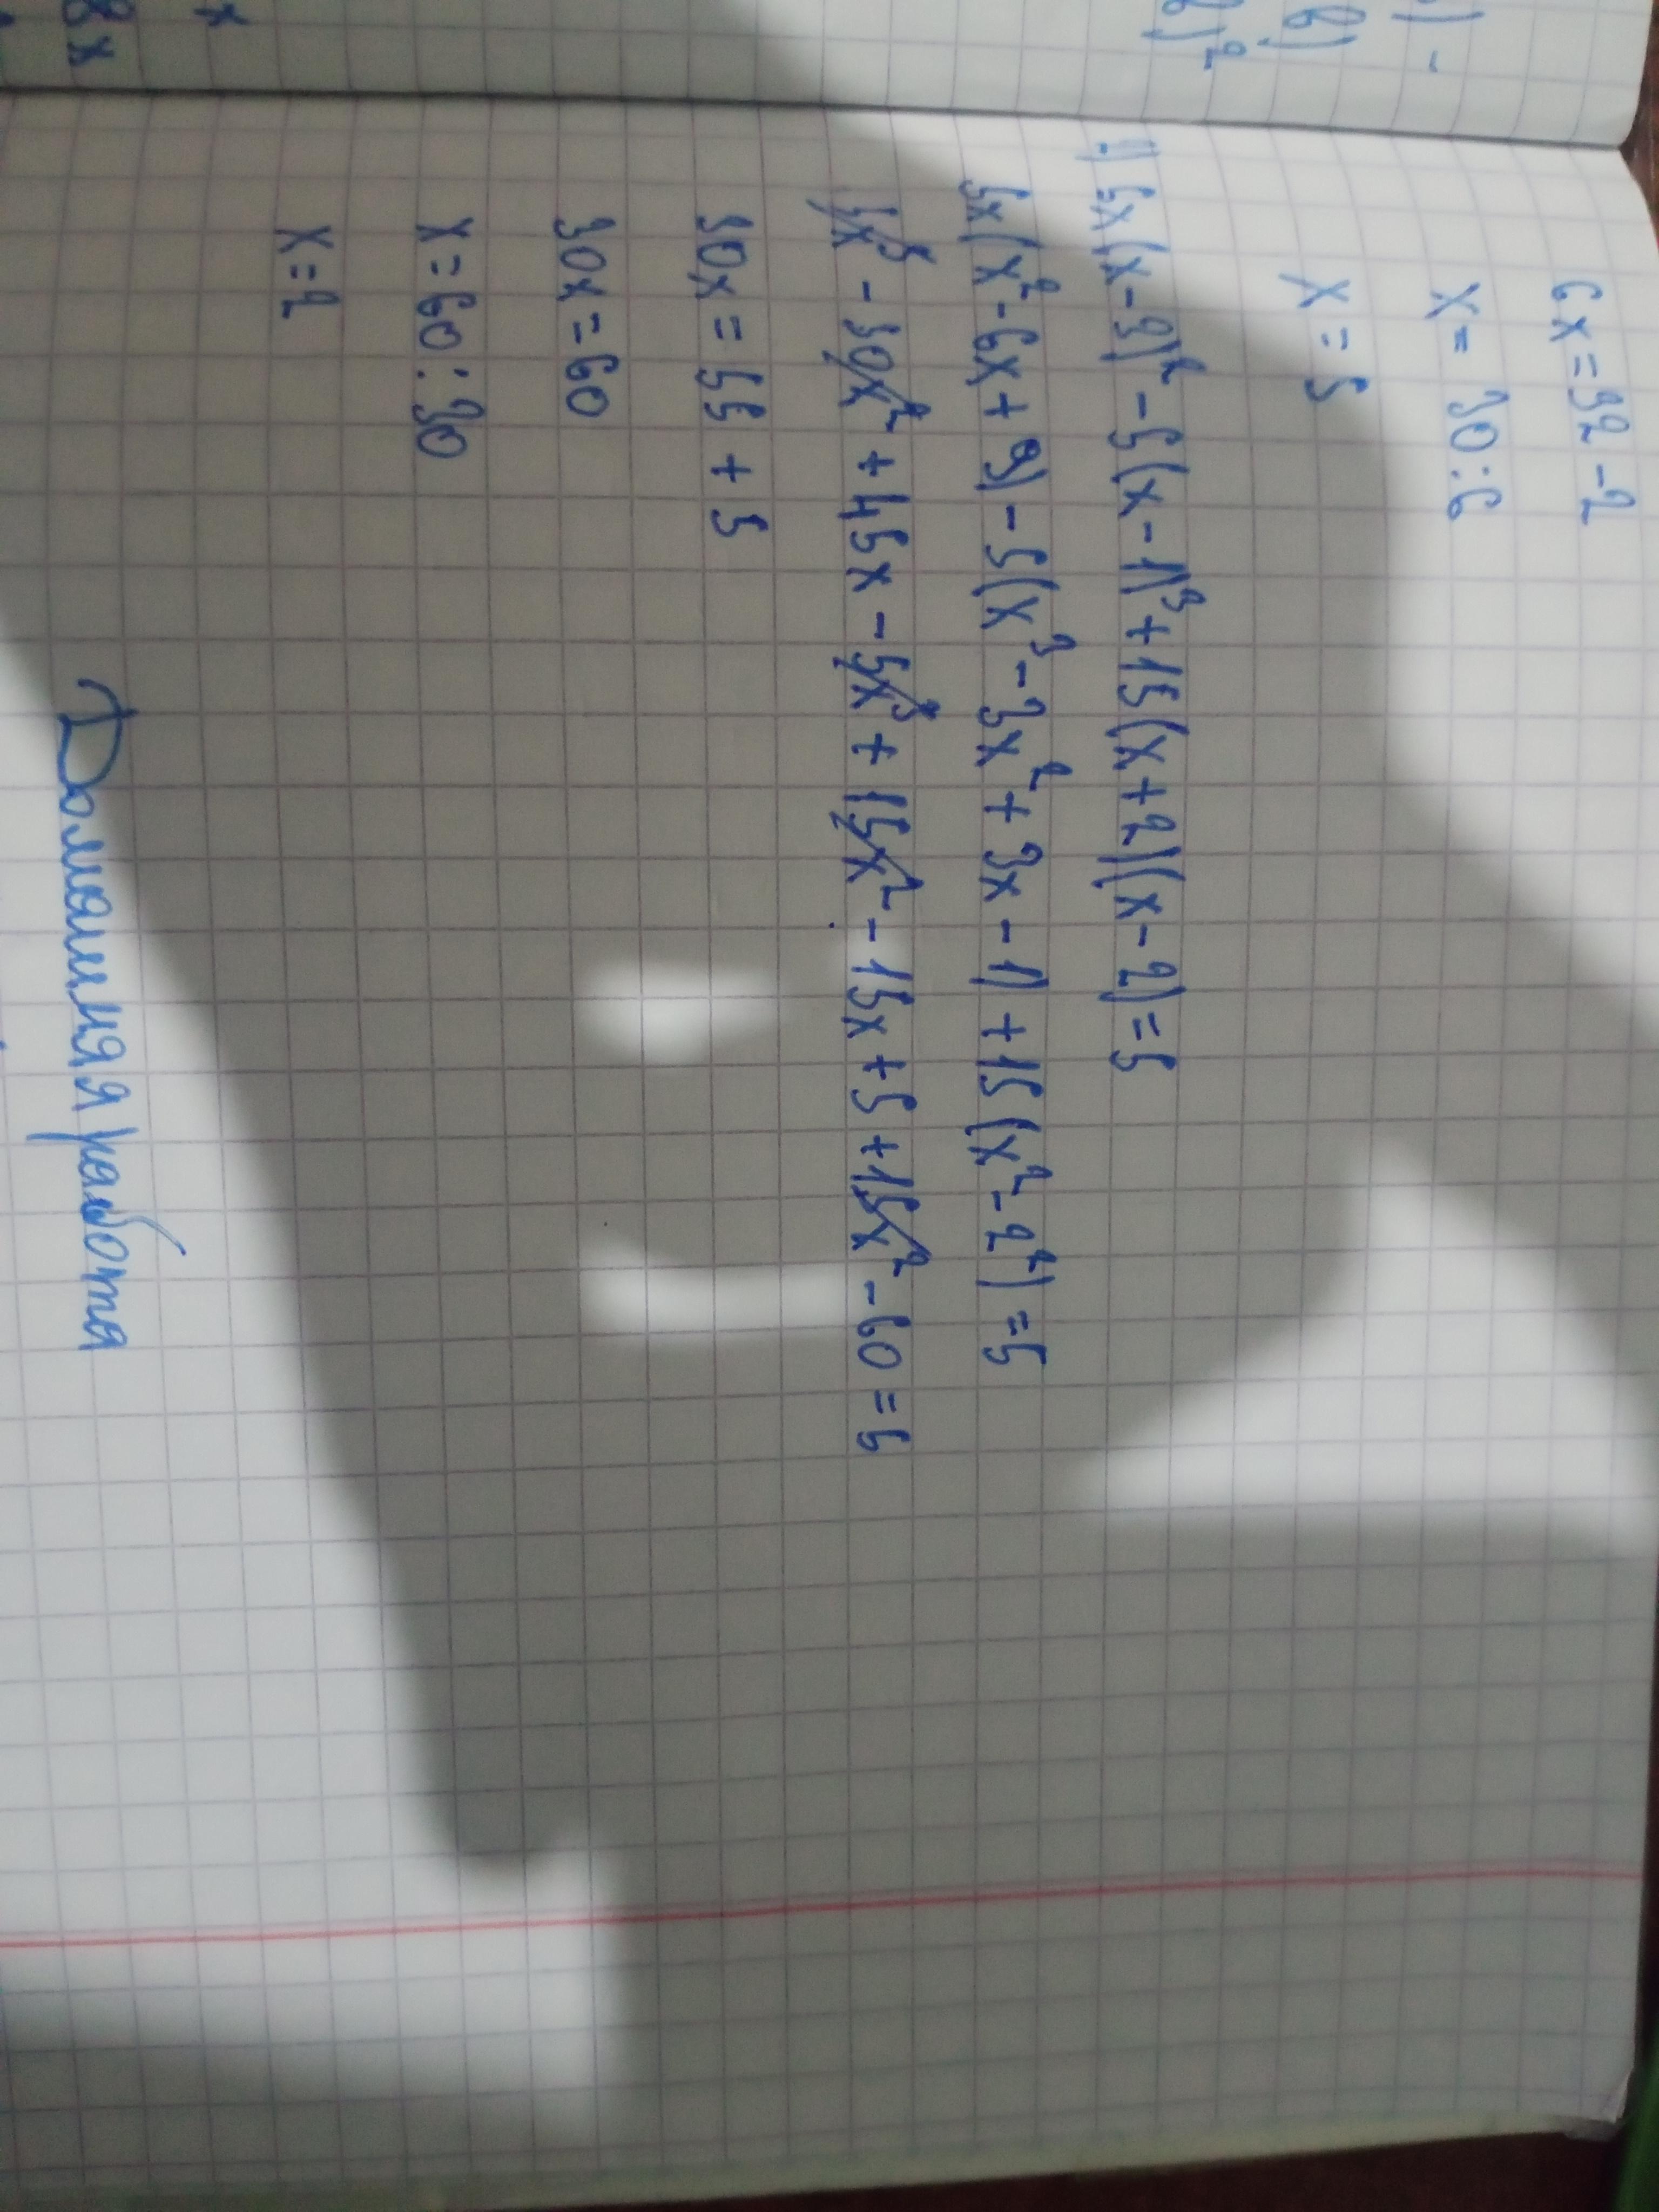 6x=32-2
x= 30:6
x=5
4) 5x(x-3)²-5(x-1)³+15(x+2)(x-2)=5
5x(x²-6x+9)-5(x³-3x²+3x-1)+15(x²-2²)=5
5x³-30x²+45x-5x³+15x²-15x+5+15x²-60=5
30x=55+5
30x=60
x=60:30
x=2
Домашняя работа